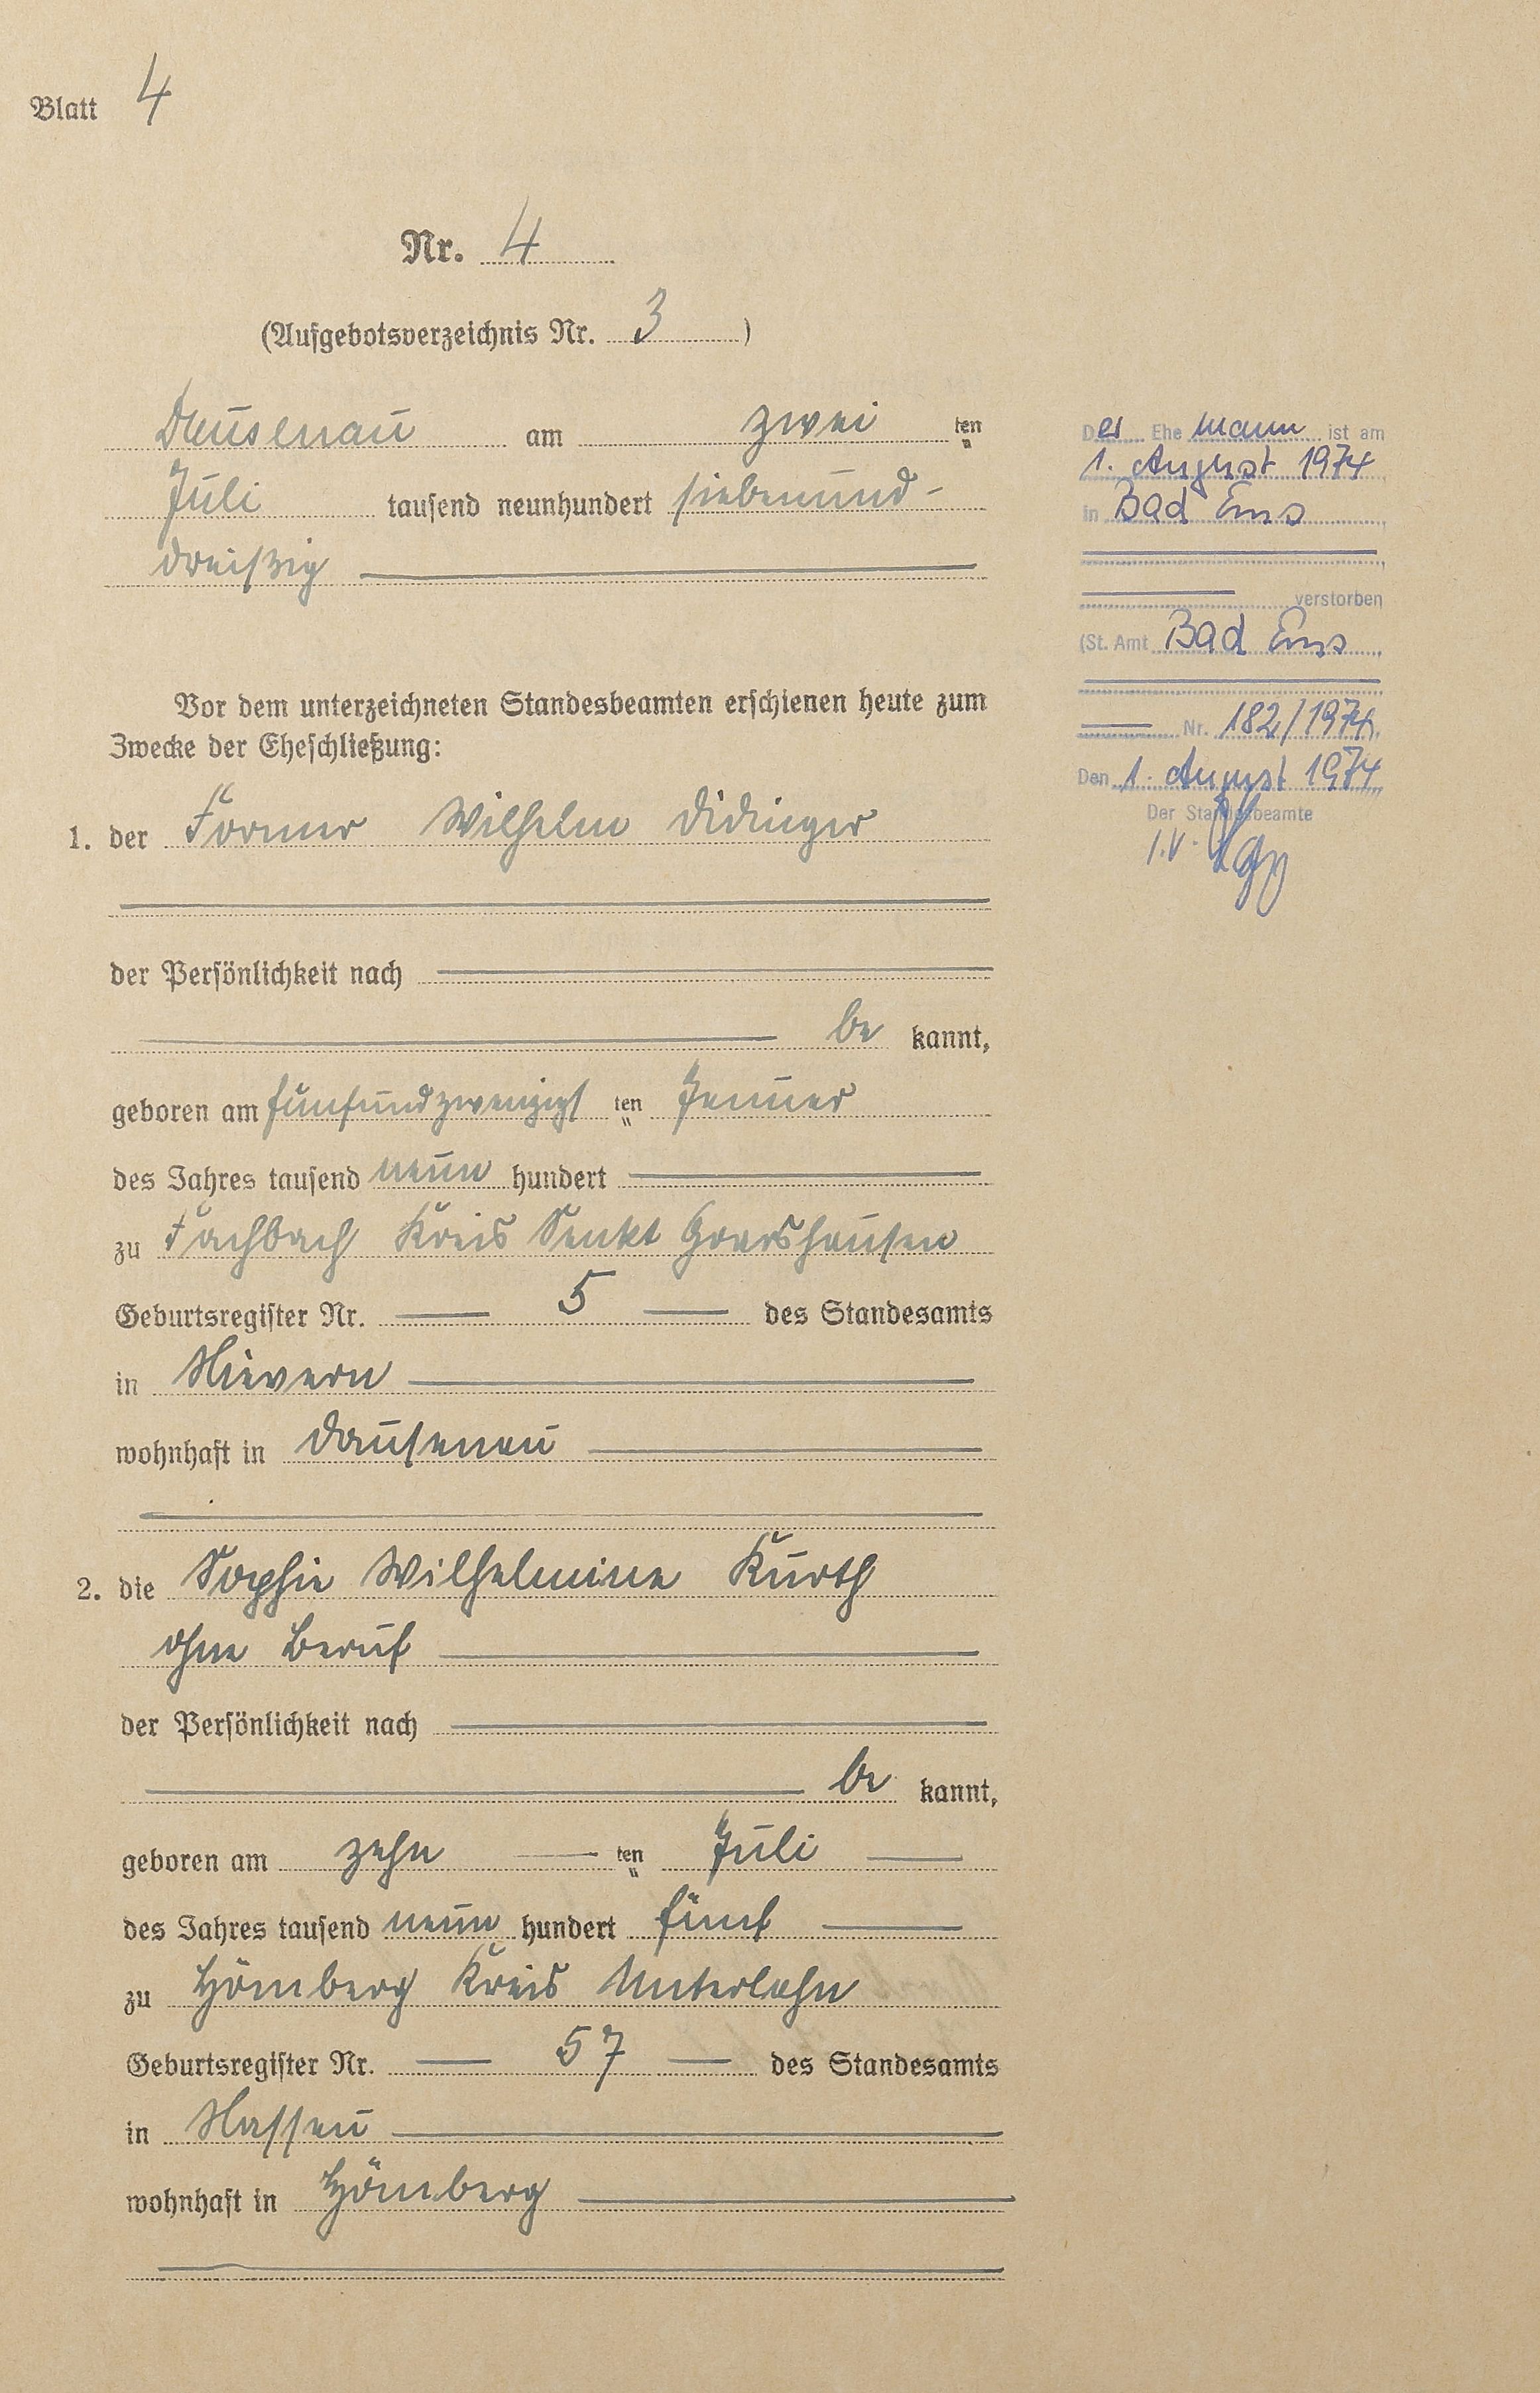 Blatt 4
Nr. 4
(Aufgebotsverzeichnis Nr. 3 )
Dausenau am zwei ten
Juli tausend neunhundert siebenund-
dreißig
Vor dem unterzeichneten Standesbeamten erschienen heute zum
Zwecke der Eheschließung:
1. der Former Wilhelm Didinger
der Persönlichkeit nach
be kannt,
geboren am fünfundzwanzigs ten Januar
des Jahres tausend neun hundert
zu Fachbach Kreis Sankt Goarshausen
Geburtsregister Nr. 5 des Standesamts
in Nievern
wohnhaft in Dausenau
2. die Sophie Wilhelmine Kurth
ohne Beruf
der Persönlichkeit nach
be kannt,
geboren am zehn ten Juli
des Jahres tausend neun hundert fünf
zu Hömberg Kreis Unterlahn
Geburtsregister Nr. 57 des Standesamts
in Nassau
wohnhaft in Hömberg
Der Ehe mann ist am
1. August 1974
in Bad Ems
verstorben
(St. Amt Bad Ems
Nr. 182/1974
Den 1. August 1974
Der Standesbeamte
I.V.